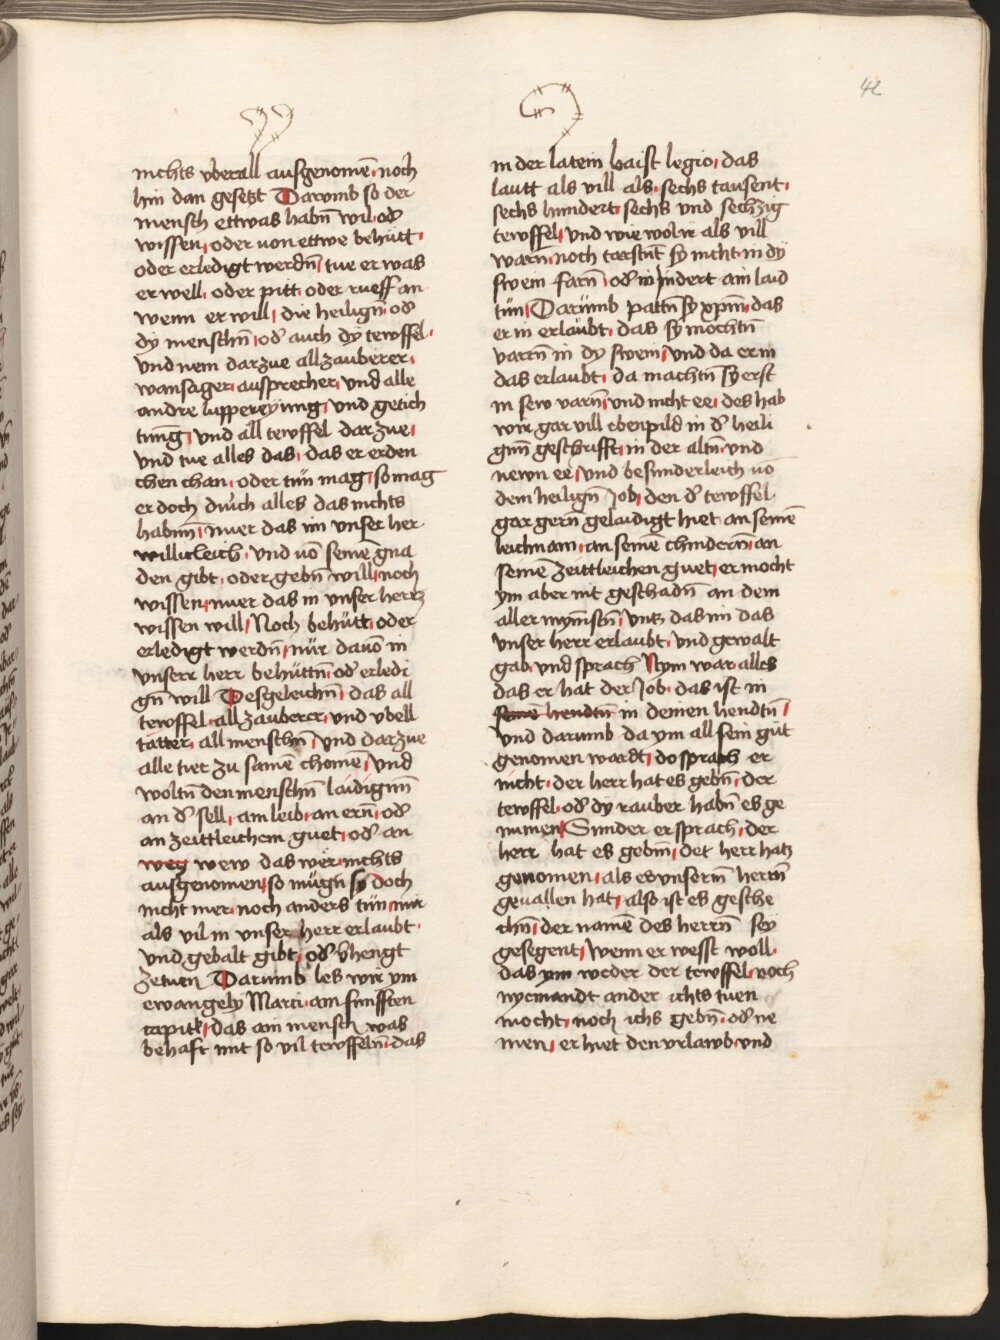 42
nichts vberall ausgenomē noch
hin dan gesetzt Darumb so der
mensch ettwas habn̄ wil od̓
wissen oder von ettwe behütt
oder erledigt werdn̄ tue er was
er well oder pitt oder rueff an
wenn er will die heilign̄ od̓
dy menschn̄ od̓ auch dy tewffel
vnd nem darzue all zauberer
warsager aussprecher vnd alle
andre luppereyung vnd getich
tung vnd all tewffel darzue
vnd tue alles das das er erden
chen chan oder tün mag so mag
er doch durch alles das nichts
habnn̄ nuer das im vnser her
willicleich vnd uō seinē gna
den gibt oder gebn̄ will noch
wissen nuer das in vnser herr
wissen will Noch behütt oder
erledigt werdn̄ nür dauō in
vnserr herr behüttn̄ od̓ erledi
gn̄ will Desgeleichn̄ das all
tewffel all zauberer vnd vbell
tätter all menschn̄ vnd darzue
alle tier zu samē chomē vnd
woltn̄ den menschn̄ laidignn̄
an d̓ sell am leib an ern̄ od̓
an zeittleichem guet od̓ an
weg wew das wer nichts
ausgenomen so mügn̄ sy doch
nicht mer noch anders tün nur
als vil in vnser herr erlaubt
vnd gebalt gibt od̓ v̓hengt
zetuen Darumb les wir ym
ewangely Marci am funfften
capitl das ain mensch was
behaft mit so vil tewffeln̄ das
in der latein haist legio das
lautt als vill als sechs tausent
sechs hundert sechs vnd sechzig
tewffel vnd wie wol ir als vill
warn̄ noch tarstn̄t sy nicht in dy
swein farn̄ od̓ in hindert ain laid
tün Darumb pattn̄ sy xpm̄ das
er in erlaubt das sy mochtn̄
varn̄ in dy swein vnd da er in
das erlaubt da machtn̄ sy erst
in sew varn̄ vnd nicht ee des hab
wir gar vill ebenpild in d̓ heili
gnn̄ geschrifft in der altn̄ vnd
newn ee vnd besunderleich uō
dem heilign̄ Job den d̓ tewffel
gar gern̄ gelaidigt hiet an seinē
leichnam an seinē chindern̄ an
seinē zeittleichen guet er mocht
ym aber nit geschadn̄ an dem
aller mynnstn̄ vntz das im das
vnser herr erlaubt vnd gewalt
gab vnd sprach Nym war alles
das er hat der Job das ist in
seinē hendtn̄ in deinen hendtn̄
vnd darumb da ym all sein güt
genomen wardt do sprach er
nicht der herr hat es gebn̄ der
tewffel od̓ dy rauber habn̄ es ge
nummen Sunder er sprach der
herr hat es gebnn̄ det herr hatz
genomen als es vnserm̄ herrn̄
geuallen hat also ist es gesche
chn̄ der namē des herrn̄ sey
gesegent wenn er wesst woll
das ym weder der tewffel noch
nyemandt ander ichts tuen
mocht noch ichs gebn̄ od̓ ne
men er hiet den vrlawb vnd